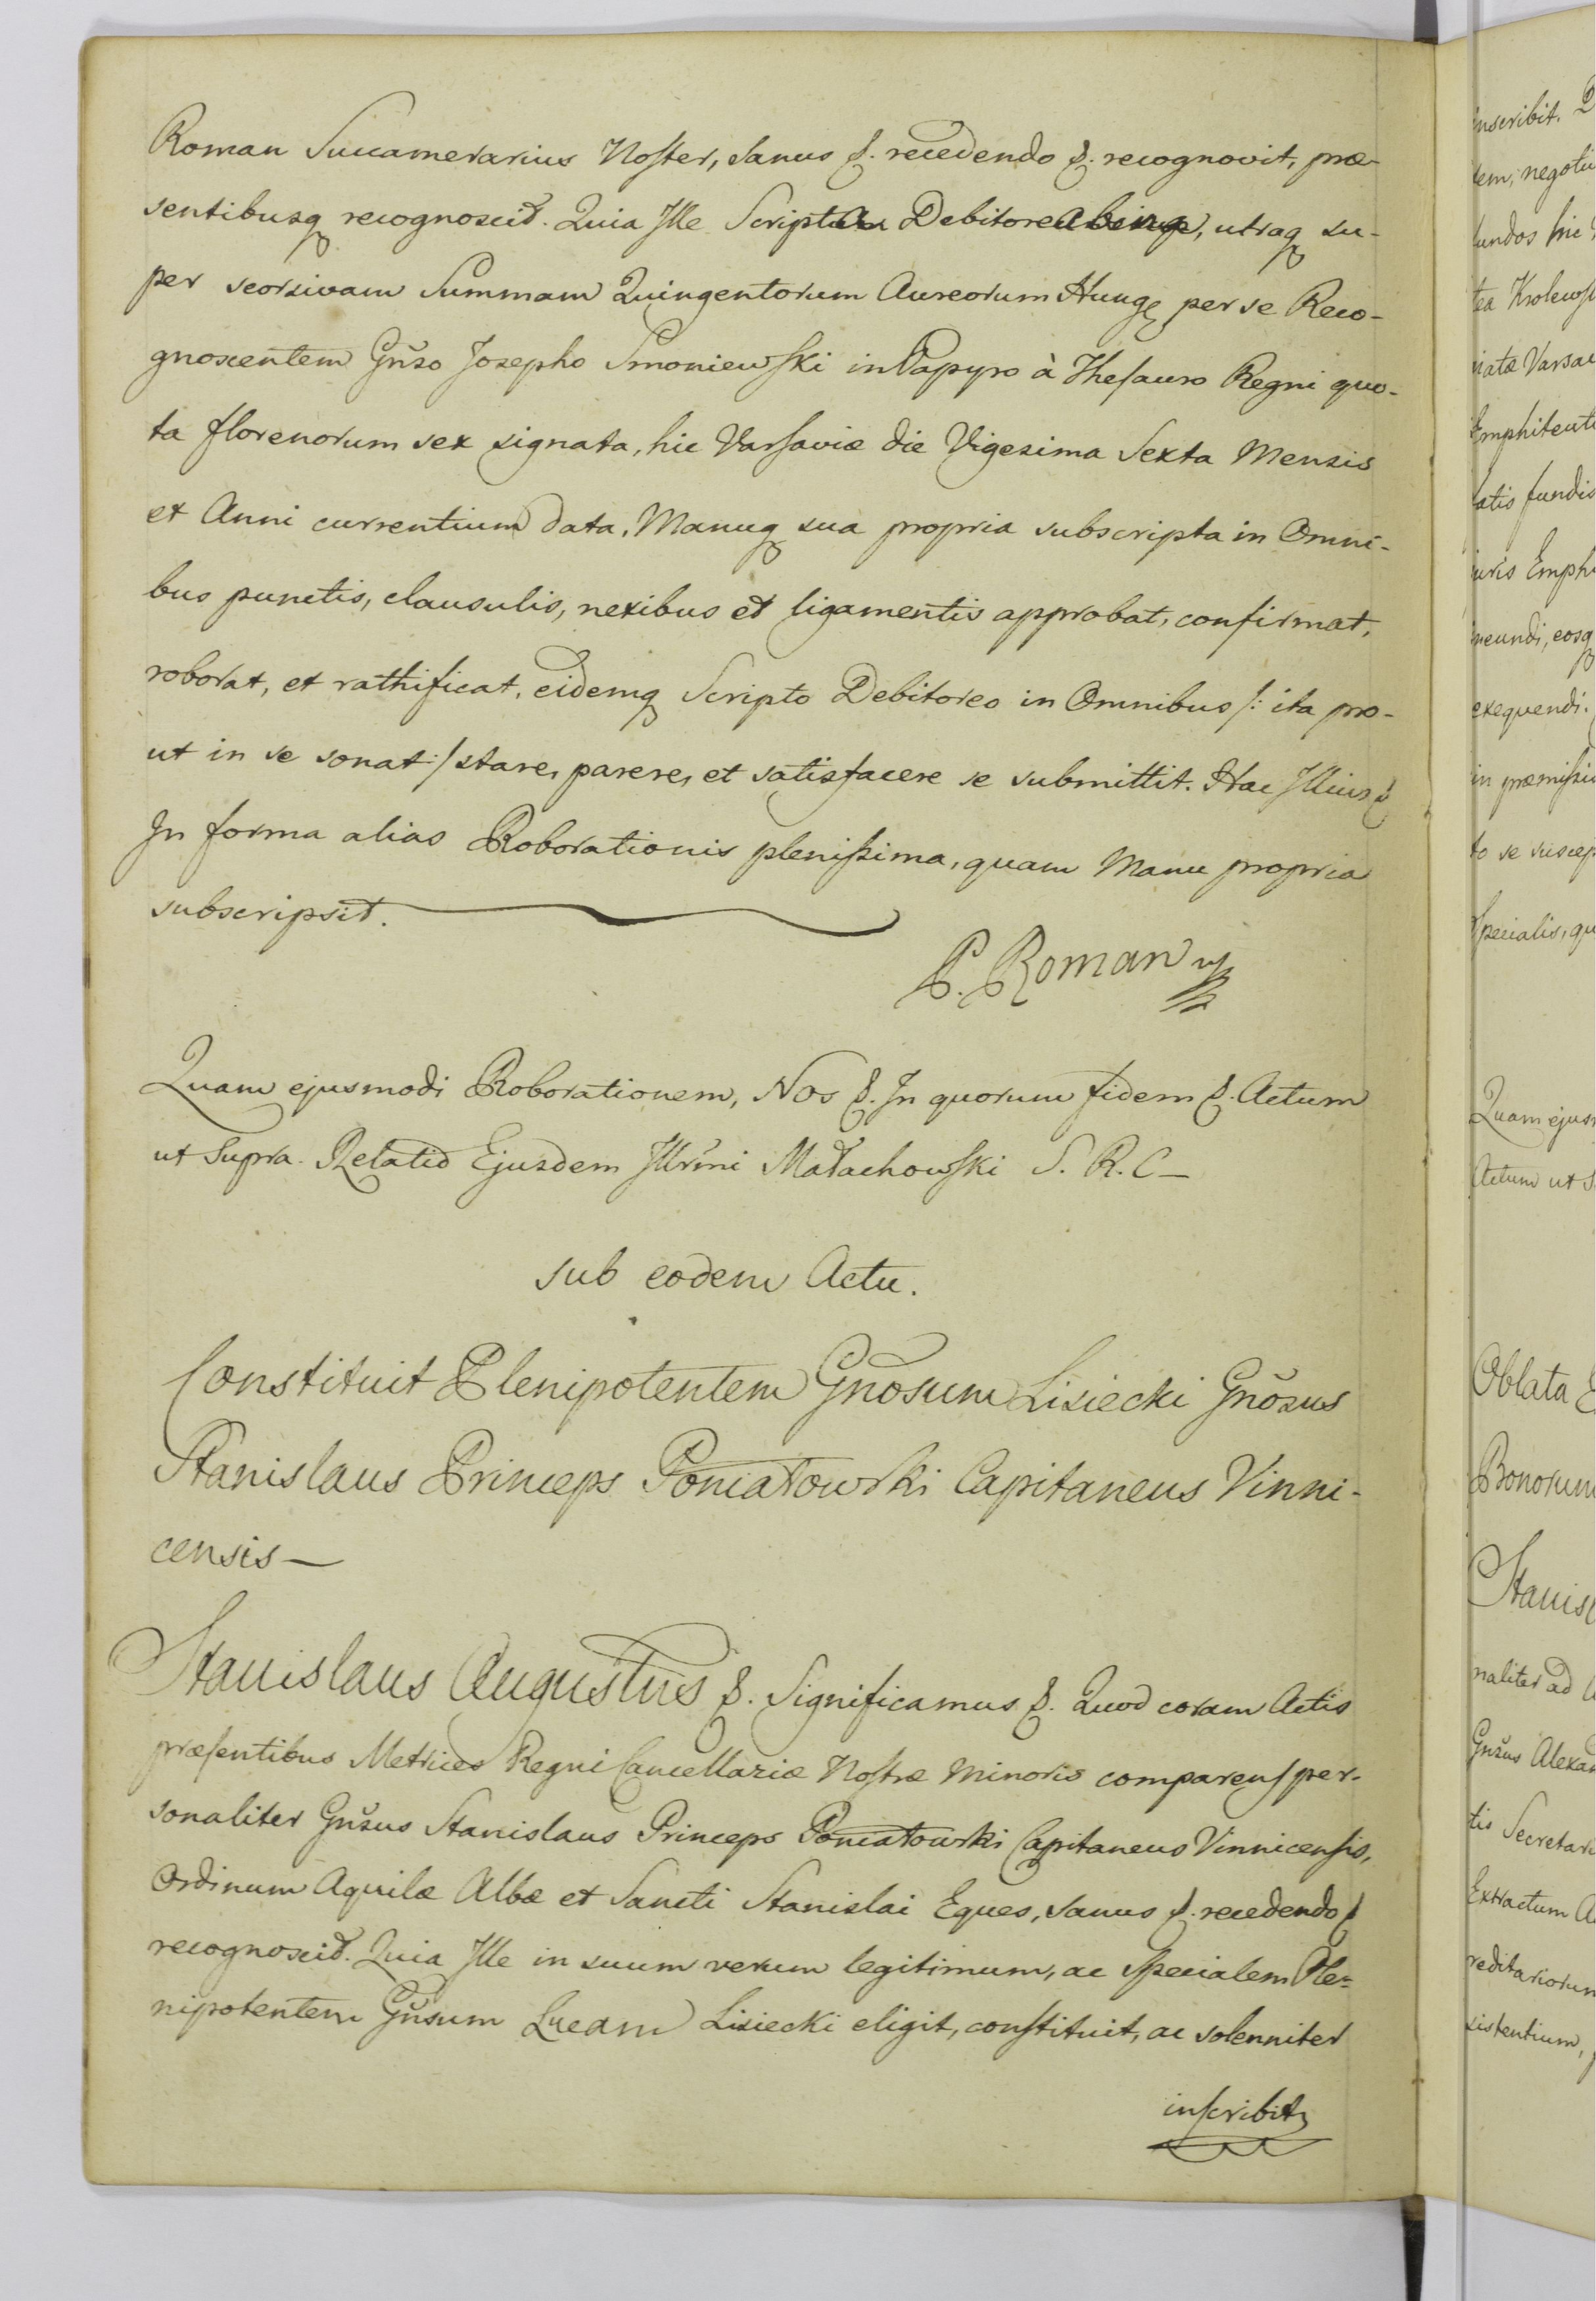 Roman Succamerarius Noster, Sanus &. recedendo &. recognovit, præ-
sentibusq recognoscit. Quia Ille Scripta Debitorea bina, utraq su-
per seorsivam Summam Quingentorum Aureorum Hung per se Reco-
gnoscentem Gn̄so Josepho Smoniewski in Papyro à Thesauro Regni quo-
ta florenorum sex signata, hic Varsaviæ die Vigesima Sexta Mensis
et Anni currentium data, Manuq sua propria subscripta in Omni-
bus punctis, clausulis, nexibus et ligamentis approbat, confirmat,
roborat, et rathificat, eidemq Scripto Debitoreo in Omnibus /: ita pro-
ut in se sonat :/ stare, parere, et satisfacere se submittit. Hac Illius &
In forma alias Roborationis plenissima, quam Manu propria
subscripsit.
P. Roman
Quam ejusmodi Roborationem, Nos &. In quorum fidem &. Actum
ut Supra. Relatio Ejusdem Illr̄mi Małachowski S. R. C –
Sub eodem Actu.
Constituit Plenipotentem Gn̄osum Lisiecki Gn̄osus
Stanislaus Princeps Poniatowski Capitaneus Vinni-
censis –
Stanislaus Augustus &. Significamus &. Quod coram Actis
præsentibus Metrices Regni Cancellariæ Nostræ Minoris comparens per-
sonaliter Gn̄sus Stanislaus Princeps Poniatowski Capitaneus Vinnicensis,
Ordinum Aquilæ Albæ et Sancti Stanislai Eques, sanus &. recedendo &
recognoscit. Quia Ille in suum verum legitimum, ac specialem Ple-
nipotentem Gn̄sum Lucam Lisiecki eligit, constituit, ac solenniter
inscribit
inscribit.
tem, negoti
fundos hic
Krolews
Varsa
Emphiteut
latis fundis
juris Emph
neundi, eosq
exequendi.
in præmissis
to se suscep
specialis, qu
Quam ejus
Actum ut S
Oblata
Bonorum
Stanisl
naliter ad
Gn̄sus Alexa
tis Secretari
Extractum A
reditariorum
sistentium,